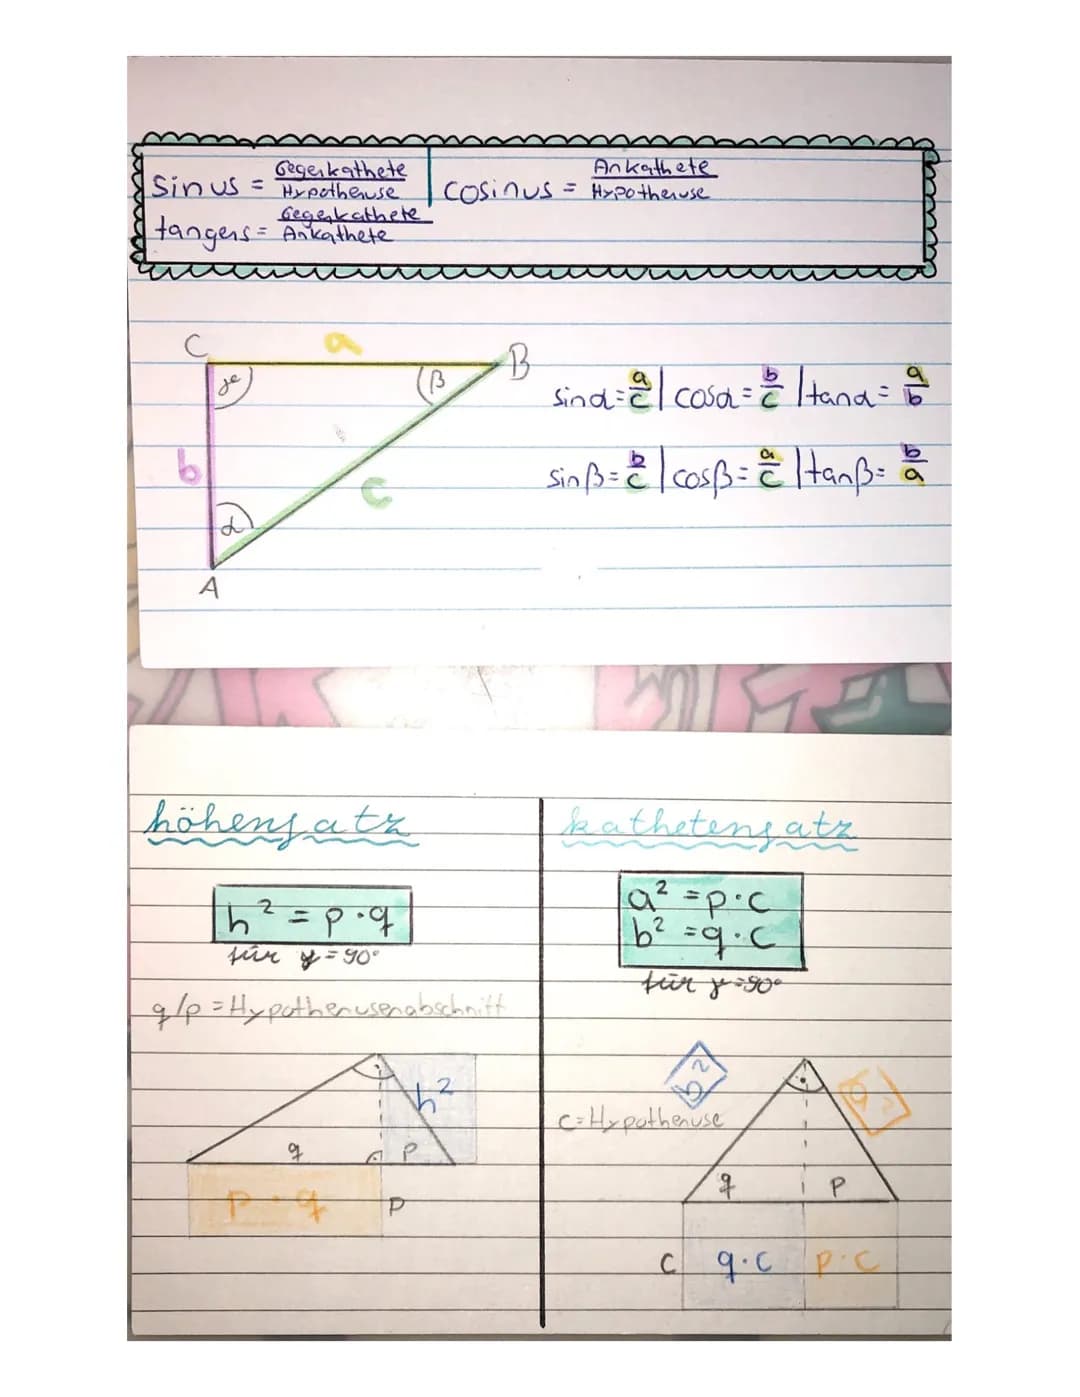 Sinus = Gegenkathete / Hypothenuse | Cosinus = Ankathete / Hypothenuse
tangens = Gegenkathete / Ankathete
C a B
γ β
b c
α
A
sinα = a/c | cosα = b/c | tanα = a/b
sinβ = b/c | cosβ = a/c | tanβ = b/a
höhensatz
h² = p · q
für γ = 90°
q/p = Hypothenusenabschnitt
h²
q p
p · q p
kathetensatz
a² = p · c
b² = q · c
für γ = 90°
b² a²
c = Hypothenuse
q p
c q · c p · c